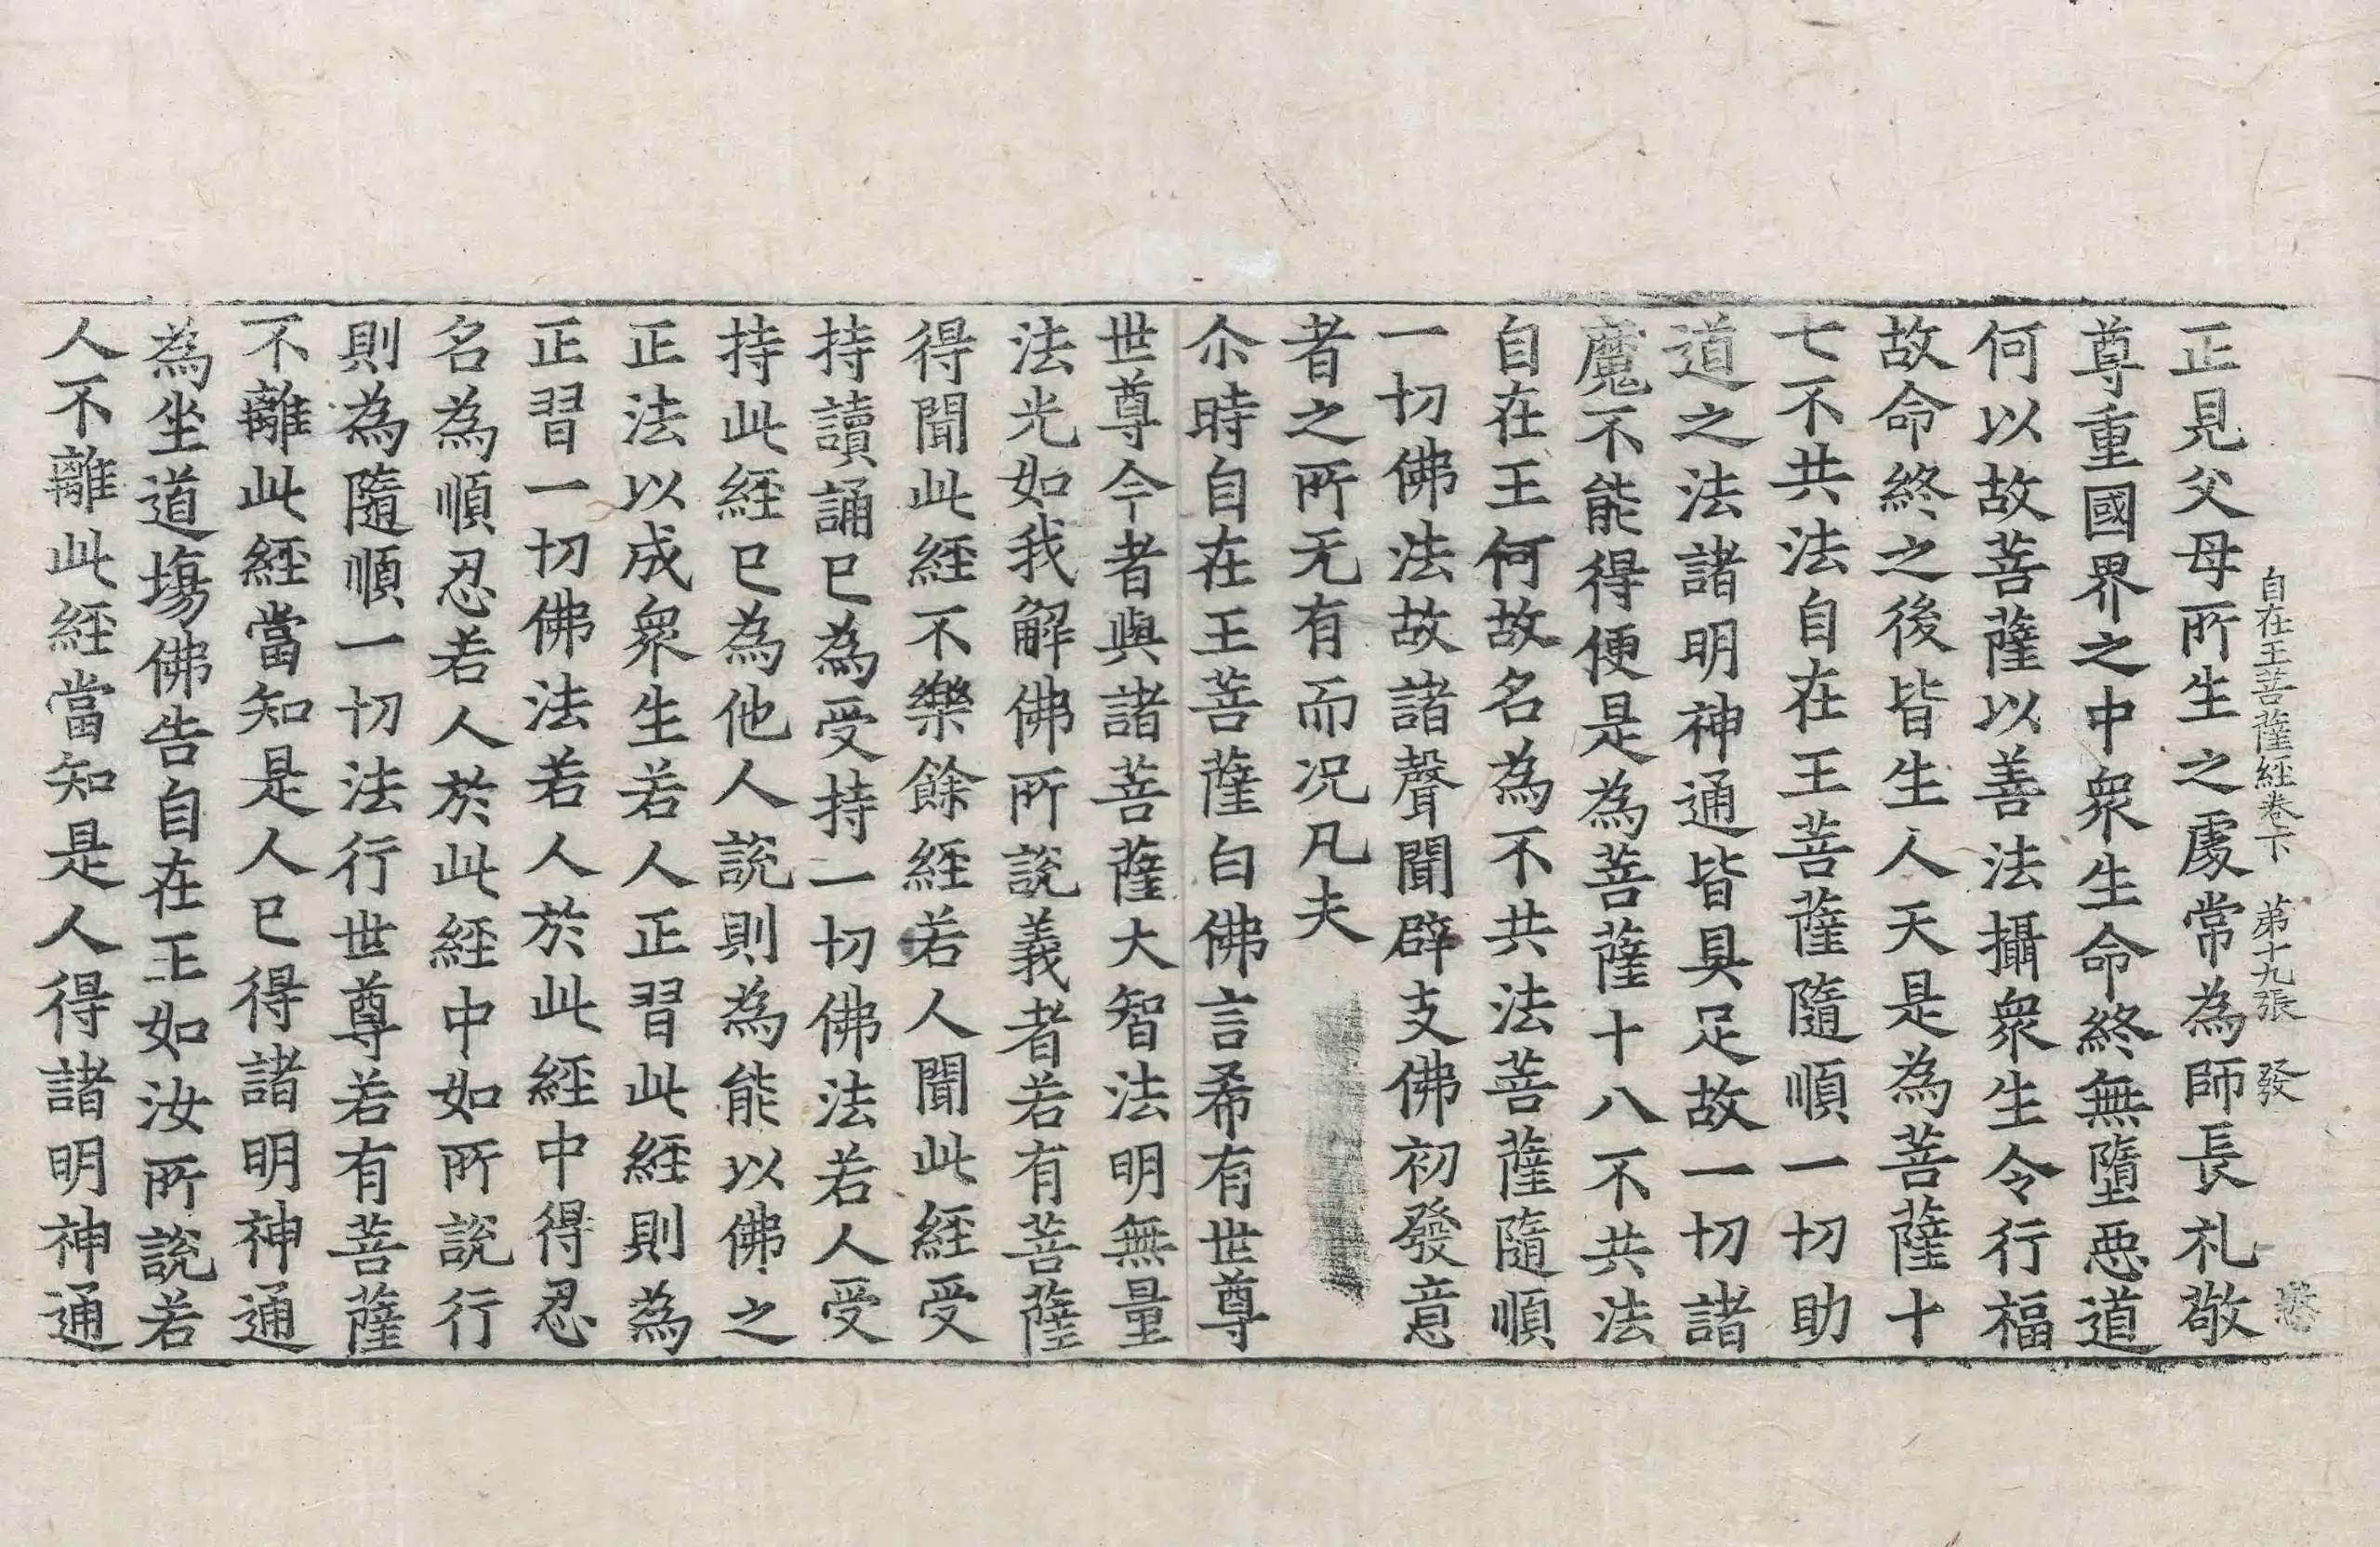 自在王菩薩經卷下 第十九張 發
正見父母所生之處常為師長礼敬
尊重國界之中衆生命終無墮惡道
何以故菩薩以善法攝衆生令行福
故命終之後皆生人天是為菩薩十
七不共法自在王菩薩隨順一切助
道之法諸明神通皆具足故一切諸
魔不能得便是為菩薩十八不共法
自在王何故名為不共法菩薩隨順
一切佛法故諸聲聞辟支佛初發意
者之所无有而况凡夫
尒時自在王菩薩白佛言希有世尊
世尊今者與諸菩薩大智法明無量
法光如我解佛所說義者若有菩薩
得聞此經不樂餘經若人聞此經受
持讀誦已為受持一切佛法若人受
持此經已為他人說則為能以佛之
正法以成衆生若人正習此經則為
正習一切佛法若人於此經中得忍
名為順忍若人於此經中如所說行
則為隨順一切法行世尊若有菩薩
不離此經當知是人已得諸明神通
為坐道場佛告自在王如汝所說若
人不離此經當知是人得諸明神通